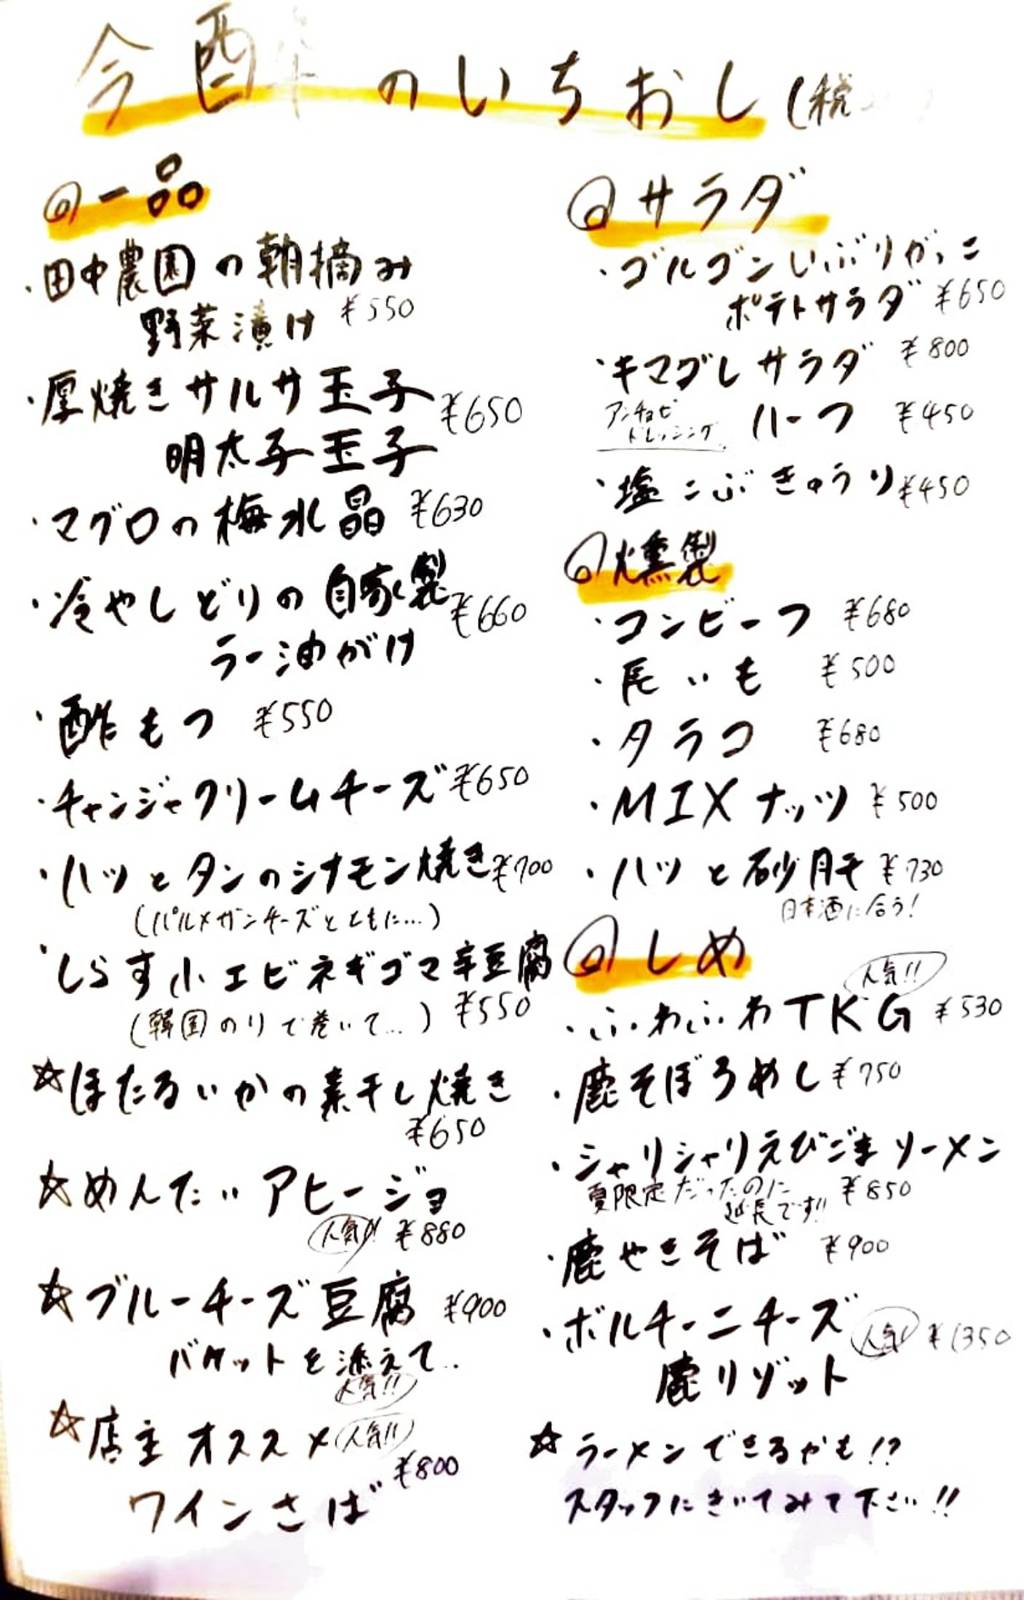 今酔のいちおし(税
◎一品
・田中農園の朝摘み
野菜漬け ¥550
・厚焼きサルサ玉子 ¥650
明太子玉子
・マグロの梅水晶 ¥630
・冷やしどりの自家製 ¥660
ラー油がけ
・酢もつ ¥550
・チャンジャクリームチーズ ¥650
・ハツとタンのシナモン焼き ¥700
(パルメザンチーズとともに…)
・しらす小エビネギゴマ辛豆腐
(韓国のりで巻いて…) ¥550
☆ほたるいかの素干し焼き
¥650
☆めんたいアヒージョ
人気!! ¥880
☆ブルーチーズ豆腐 ¥900
バケットを添えて..
人気!!
☆店主オススメ 人気!!
¥800
ワインさば
◎サラダ
・ゴルゴンいぶりがっこ
ポテトサラダ ¥650
・キマグレサラダ ¥800
アンチョビ
ドレッシング ハーフ ¥450
・塩こぶきゅうり ¥450
◎燻製
・コンビーフ ¥680
・長いも ¥500
・タラコ ¥680
・MIXナッツ ¥500
・ハツと砂肝 ¥730
日本酒に合う!
◎しめ
人気!!
・ふわふわTKG ¥530
・鹿そぼろめし ¥750
・シャリシャリえびごまソーメン
夏限定だったのに ¥850
延長です!!
・鹿やきそば ¥900
・ボルチーニチーズ 人気! ¥1350
鹿リゾット
☆ラーメンできるかも!?
スタッフにきいてみて下さい!!